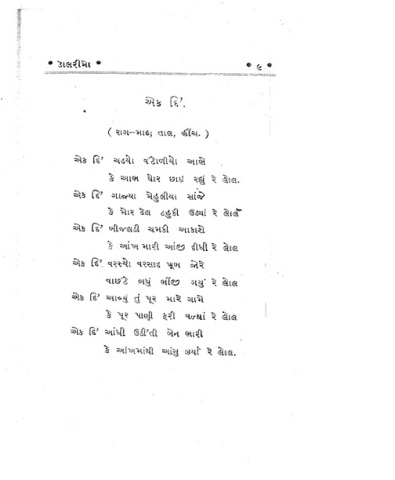 • ડાલરીમા • • ૯ •
એક દિ'.
( રાગ-માઢ; તાલ, હીંચ. )
એક દિ' ચઢયો વંટોળીયો આભે
કે આભ ઘોર છાઇ રહ્યું રે લોલ.
એક દિ' ગાજ્યા મેહુલીયા સાંજે
કે મોર ઢેલ ટહુકી ઉઠ્યાં રે લોલ
એક દિ' બીજલડી ચમકી આકાશે
કે આંખ મારી આંજી દીધી રે લોલ
એક દિ' વરસ્યો વરસાદ ખુબ જોરે
વાછટે બધું ભીંજી ગયું રે લોલ
એક દિ' આવ્યું તું પૂર મારે ગામે
કે પૂર પાણી ફરી વળ્યાં રે લોલ
એક દિ' આંધી ઉડી'તી બેન ભારી
કે આંખમાંથી આંસુ ઝર્યાં રે લોલ.